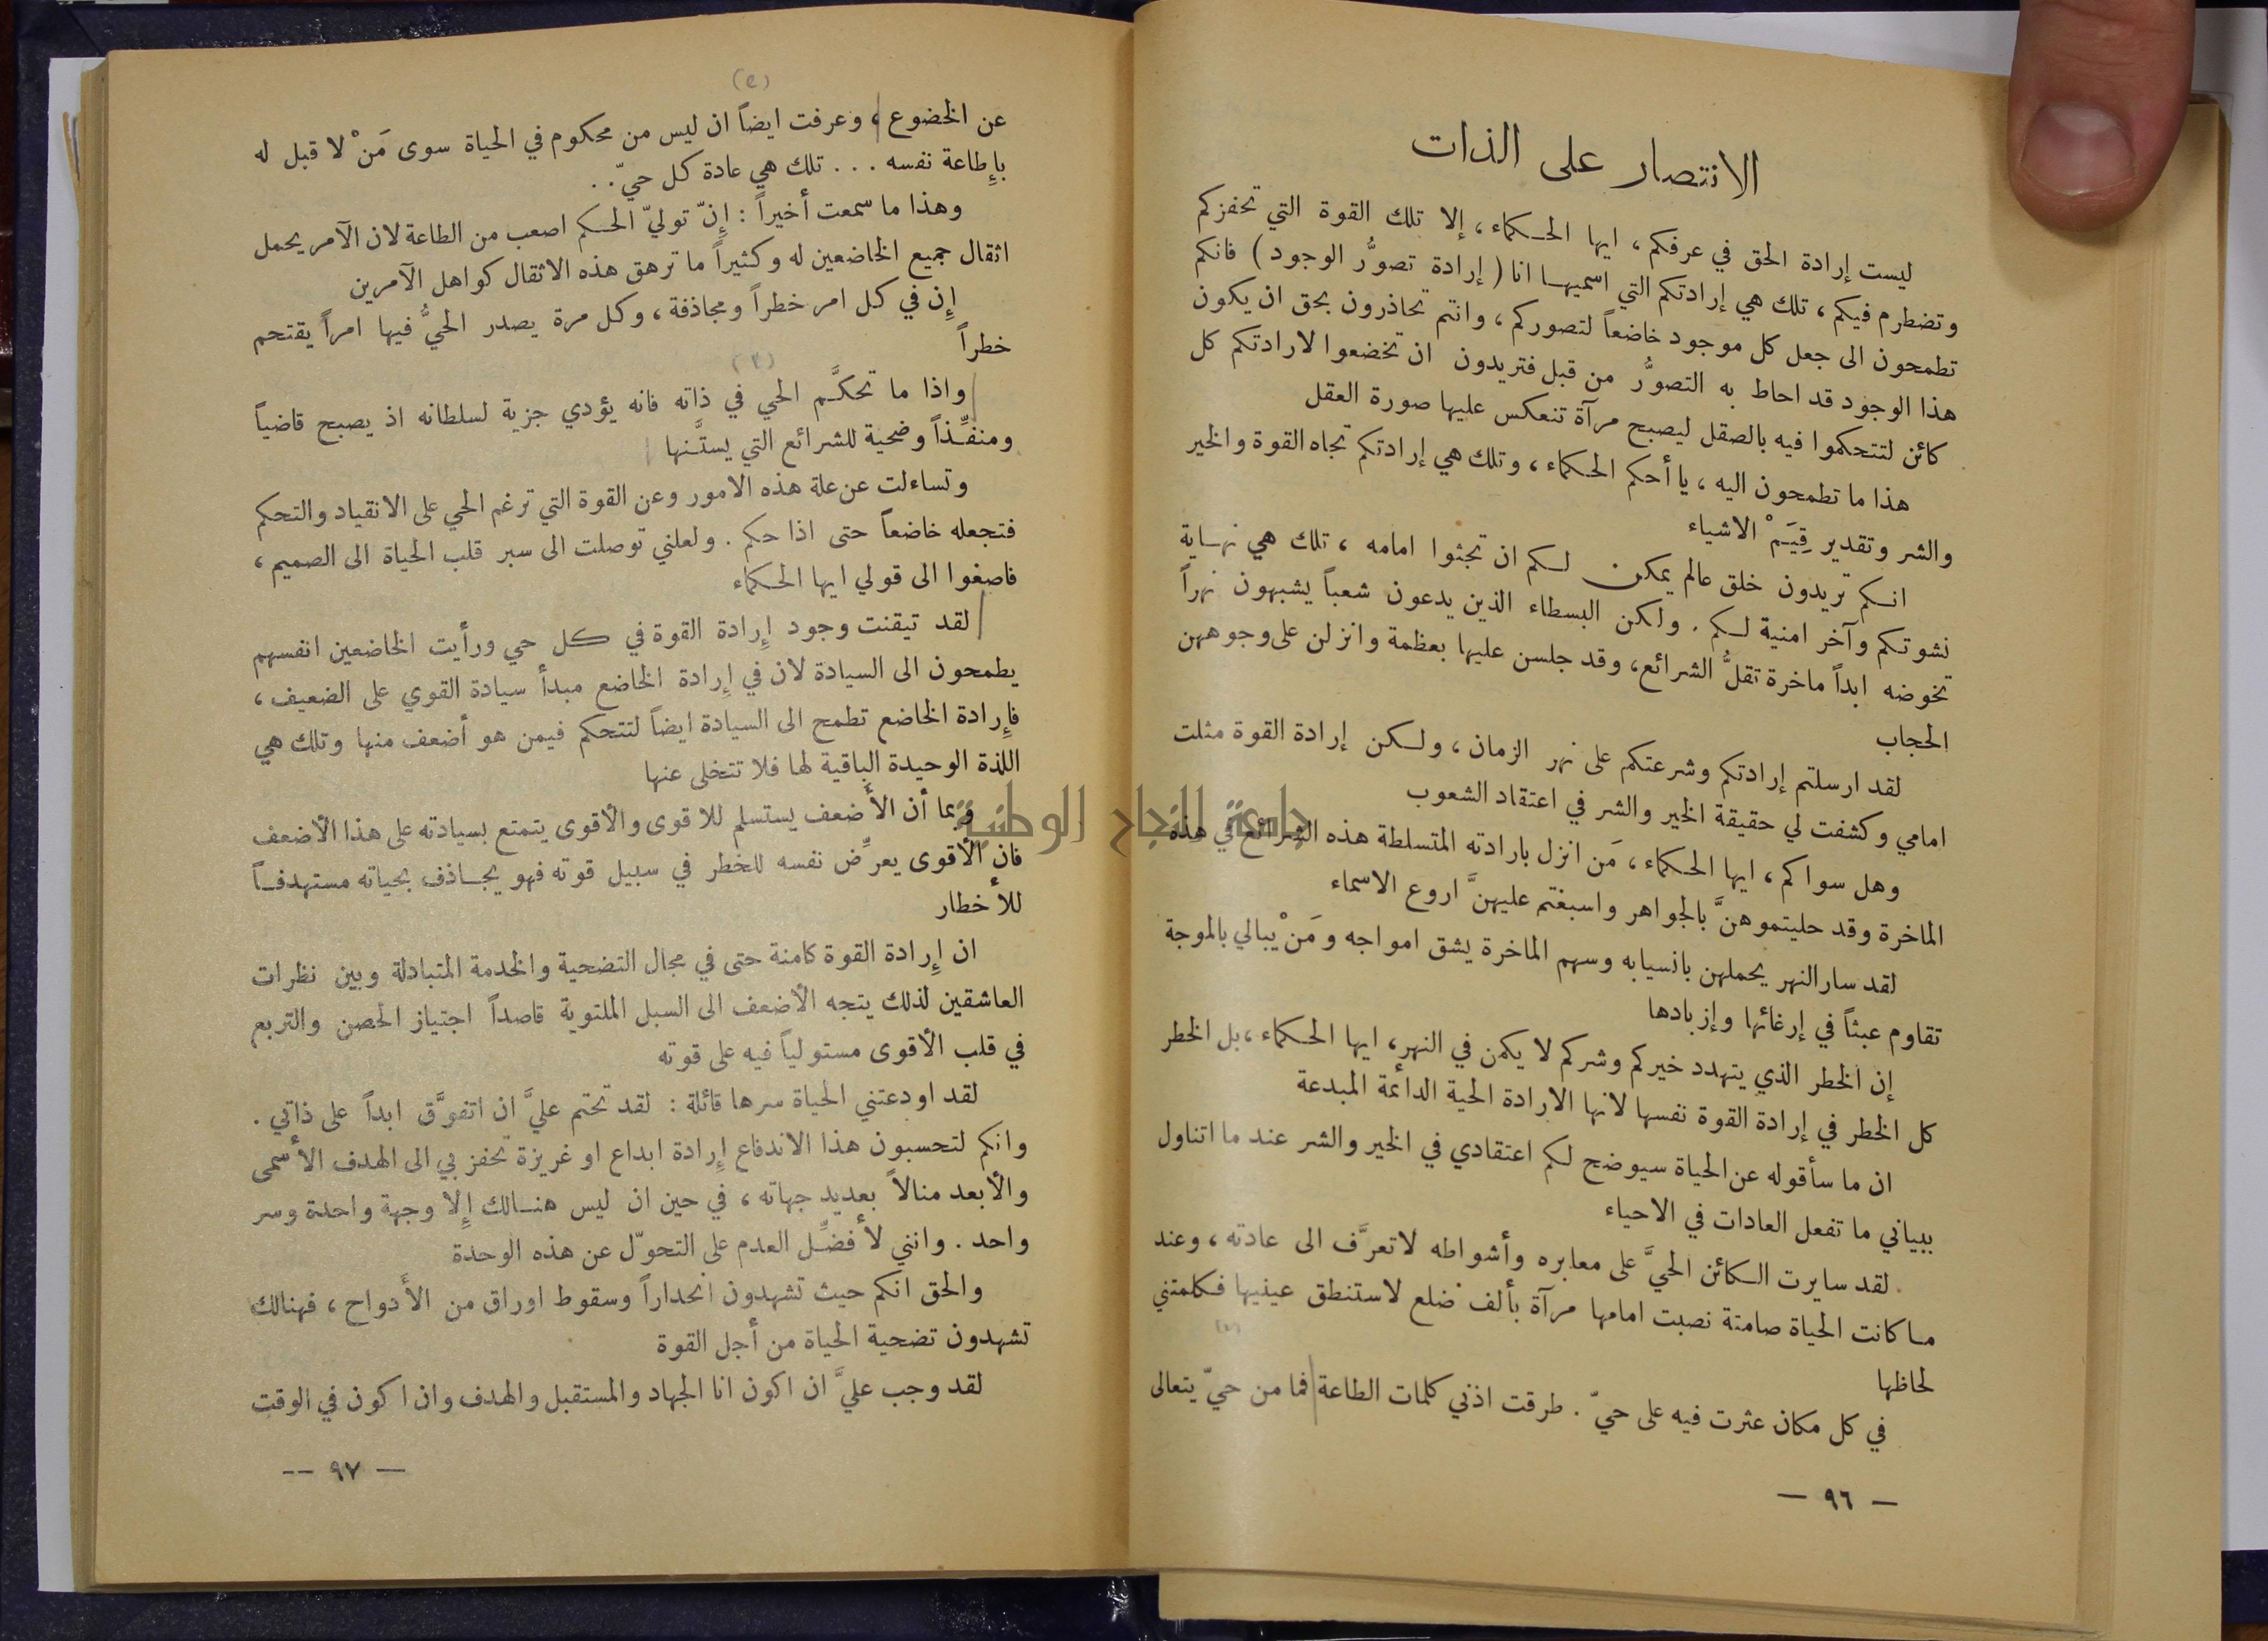 الانتصار على الذات
ليست إرادة الحق في عرفكم ، ايها الحكماء ، إلا تلك القوة التي تحفزكم
وتضطرم فيكم ، تلك هي إرادتكم التي اسميها انا ( إرادة تصوُّر الوجود ) فانكم
تطمحون الى جعل كل موجود خاضعاً لتصوركم ، وانتم تحاذرون بحق ان يكون
هذا الوجود قد احاط به التصوُّر من قبل فتريدون ان تخضعوا لارادتكم كل
كائن لتتحكموا فيه بالصقل ليصبح مرآة تنعكس عليها صورة العقل
هذا ما تطمحون اليه ، يا أحكم الحكماء ، وتلك هي إرادتكم تجاه القوة والخير
والشر وتقدير قِيَمْ الاشياء
انكم تريدون خلق عالم يمكن لكم ان تجثوا امامه ، تلك هي نهاية
نشوتكم وآخر امنية لكم . ولكن البسطاء الذين يدعون شعباً يشبهون نهراً
تخوضه ابداً ماخرة تقلُّ الشرائع ، وقد جلسن عليها بعظمة وانزلن على وجوههن
الحجاب
لقد ارسلتم إرادتكم وشرعتكم على نهر الزمان ، ولكن إرادة القوة مثلت
امامي وكشفت لي حقيقة الخير والشر في اعتقاد الشعوب
وهل سواكم ، ايها الحكماء ، مَن انزل بارادته المتسلطة هذه الشرائع في هذه
الماخرة وقد حليتموهنَّ بالجواهر واسبغتم عليهنَّ اروع الاسماء
لقد سار النهر يحملهن بانسيابه وسهم الماخرة يشق امواجه ومَنْ يبالي بالموجة
تقاوم عبثاً في إرغائها وإزبادها
إن الخطر الذي يتهدد خيركم وشركم لا يكمن في النهر ، ايها الحكماء ، بل الخطر
كل الخطر في إرادة القوة نفسها لانها الارادة الحية الدائمة المبدعة
ان ما سأقوله عن الحياة سيوضح لكم اعتقادي في الخير والشر عند ما اتناول
ببياني ما تفعل العادات في الاحياء
لقد سايرت الكائن الحيَّ على معابره وأشواطه لاتعرَّف الى عادته ، وعند
ما كانت الحياة صامتة نصبت امامها مرآة بألف ضلع لاستنطق عينيها فكلمتني
لحاظها
في كل مكان عثرت فيه على حيّ . طرقت اذني كلمات الطاعة فما من حيّ يتعالى
— ٩٦ —
عن الخضوع ، وعرفت ايضاً ان ليس من محكوم في الحياة سوى مَنْ لا قبل له
بإطاعة نفسه . . . تلك هي عادة كل حيّ . .
وهذا ما سمعت أخيراً : إنّ توليّ الحكم اصعب من الطاعة لان الآمر يحمل
اثقال جميع الخاضعين له وكثيراً ما ترهق هذه الاثقال كواهل الآمرين
إن في كل امر خطراً ومجاذفة ، وكل مرة يصدر الحيُّ فيها امراً يقتحم
خطراً
(٢)
واذا ما تحكَّم الحي في ذاته فانه يؤدي جزية لسلطانه اذ يصبح قاضياً
ومنفِّذاً وضحية للشرائع التي يستَّنها
وتساءلت عن علة هذه الامور وعن القوة التي ترغم الحي على الانقياد والتحكم
فتجعله خاضعاً حتى اذا حكم . ولعلني توصلت الى سبر قلب الحياة الى الصميم ،
فاصغوا الى قولي ايها الحكماء
لقد تيقنت وجود إرادة القوة في كل حي ورأيت الخاضعين انفسهم
يطمحون الى السيادة لان في إرادة الخاضع مبدأ سيادة القوي على الضعيف ،
فإرادة الخاضع تطمح الى السيادة ايضاً لتتحكم فيمن هو أضعف منها وتلك هي
اللذة الوحيدة الباقية لها فلا تتخلى عنها
وبما أن الأضعف يستسلم للاقوى والأقوى يتمتع بسيادته على هذا الأضعف
فان الأقوى يعرِّض نفسه للخطر في سبيل قوته فهو يجاذف بحياته مستهدفاً
للأخطار
ان إرادة القوة كامنة حتى في مجال التضحية والخدمة المتبادلة وبين نظرات
العاشقين لذلك يتجه الأضعف الى السبل الملتوية قاصداً اجتياز الحصن والتربع
في قلب الأقوى مستولياً فيه على قوته
لقد اودعتني الحياة سرها قائلة : لقد تحتم عليَّ ان اتفوَّق ابداً على ذاتي .
وانكم لتحسبون هذا الاندفاع إرادة ابداع او غريزة تحفز بي الى الهدف الأسمى
والأبعد منالاً بعديد جهاته ، في حين ان ليس هنالك إلا وجهة واحدة وسر
واحد . وانني لأفضِّل العدم على التحوّل عن هذه الوحدة
والحق انكم حيث تشهدون انحداراً وسقوط اوراق من الأدواح ، فهنالك
تشهدون تضحية الحياة من أجل القوة
لقد وجب عليَّ ان اكون انا الجهاد والمستقبل والهدف وان اكون في الوقت
— ٩٧ —
جامعة النجاح الوطنية